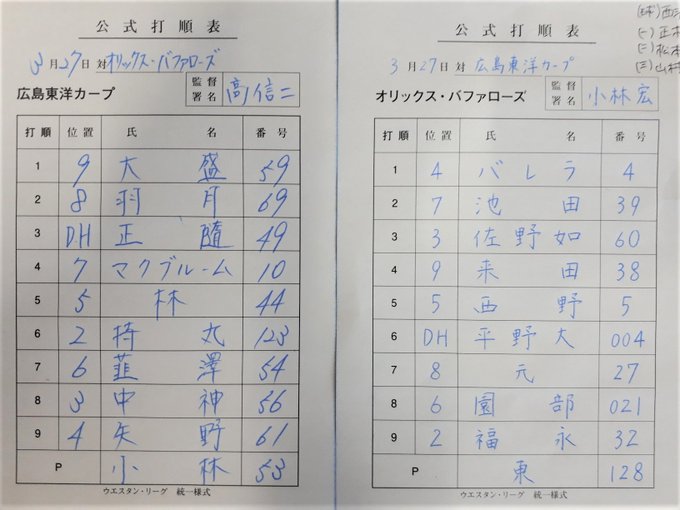 公式打順表
3月27日 対 オリックス・バファローズ
広島東洋カープ 監督署名 高信二
打順 位置 氏名 番号
1 9 大盛 59
2 8 羽月 69
3 DH 正隨 49
4 7 マクブルーム 10
5 5 林 44
6 2 持丸 123
7 6 韮澤 54
8 3 中神 56
9 4 矢野 61
P 小林 53
ウエスタン・リーグ 統一様式
公式打順表
3月27日 対 広島東洋カープ
オリックス・バファローズ 監督署名 小林宏
打順 位置 氏名 番号
1 4 バレラ 4
2 7 池田 39
3 3 佐野如 60
4 9 来田 38
5 5 西野 5
6 DH 平野大 004
7 8 元 27
8 6 園部 021
9 2 福永 32
P 東 128
ウエスタン・リーグ 統一様式
(一) 正木
(二) 松本
(三) 山村